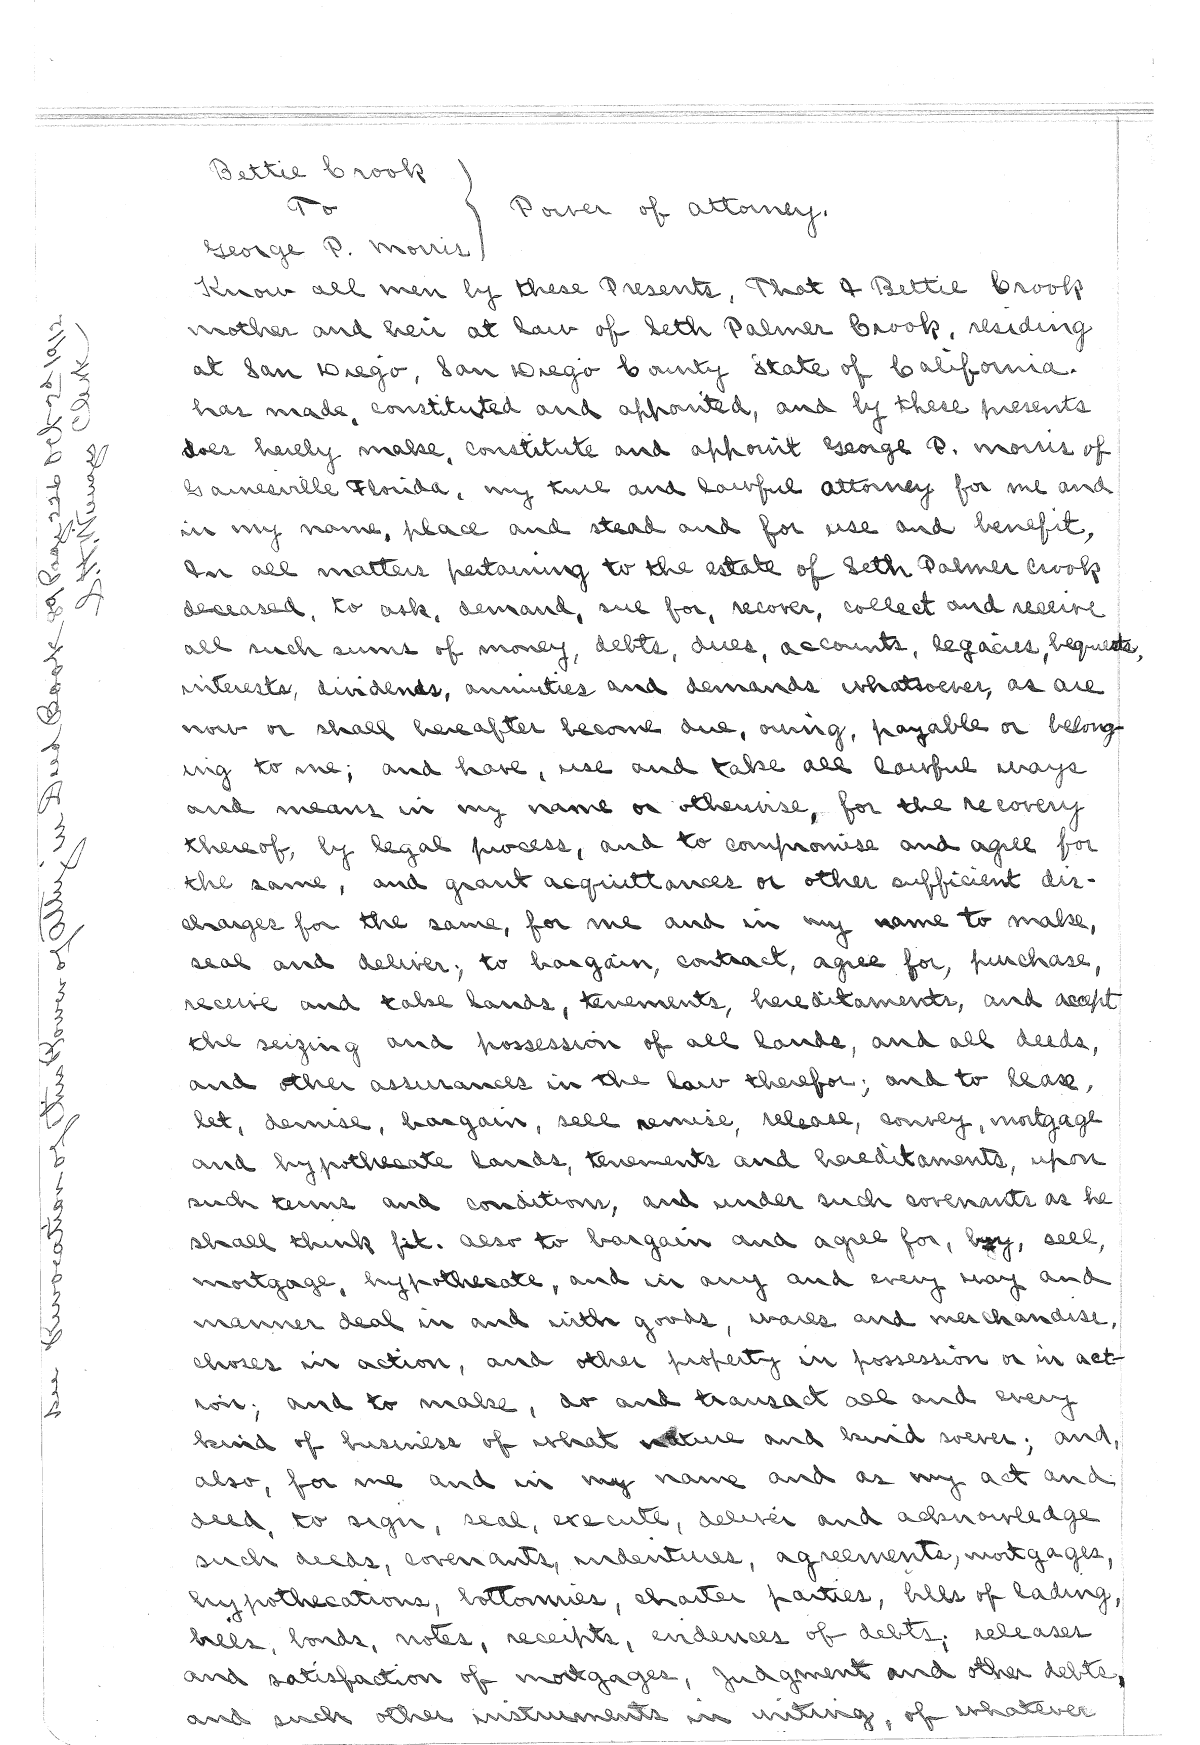 Bettie Crook
To
George P. Morris
Power of attorney.
Know all men by these Presents, That I Bettie Crook
mother and heir at law of Seth Palmer Crook, residing
at San Diego, San Diego County State of California.
has made, constituted and appointed, and by these presents
does hereby make, constitute and appoint George P. Morris of
Gainesville Florida, my true and lawful attorney for me and
in my name, place and stead and for use and benefit,
In all matters pertaining to the estate of Seth Palmer Crook
deceased, to ask, demand, sue for, recover, collect and receive
all such sums of money, debts, dues, accounts, legacies, bequests,
interests, dividends, annuities and demands whatsoever, as are
now or shall hereafter become due, owing, payable or belong-
ing to me; and have, use and take all lawful ways
and means in my name or otherwise, for the recovery
thereof, by legal process, and to compromise and agree for
the same, and grant acquittances or other sufficient dis-
charges for the same, for me and in my name to make,
seal and deliver; to bargain, contract, agree for, purchase,
receive and take lands, tenements, hereditaments, and accept
the seizing and possession of all lands, and all deeds,
and other assurances in the law therefor; and to lease,
let, demise, bargain, sell remise, release, convey, mortgage
and hypothecate lands, tenements and hereditaments, upon
such terms and conditions, and under such covenants as he
shall think fit. also to bargain and agree for, buy, sell,
mortgage, hypothecate, and in any and every way and
manner deal in and with goods, wares and merchandise,
choses in action, and other property in possession or in act-
ion; and to make, do and transact all and every
kind of business of what nature and kind soever; and,
also, for me and in my name and as my act and
deed, to sign, seal, execute, deliver and acknowledge
such deeds, covenants, indentures, agreements, mortgages,
hypothecations, bottomries, charter parties, bills of lading,
bills, bonds, notes, receipts, evidences of debts; releases
and satisfaction of mortgages, judgment and other debts,
and such other instruments in writing, of whatever
See Revocation of this Power of Atty in Deed Book 80 Page 226 Oct-22 1912
Clerk